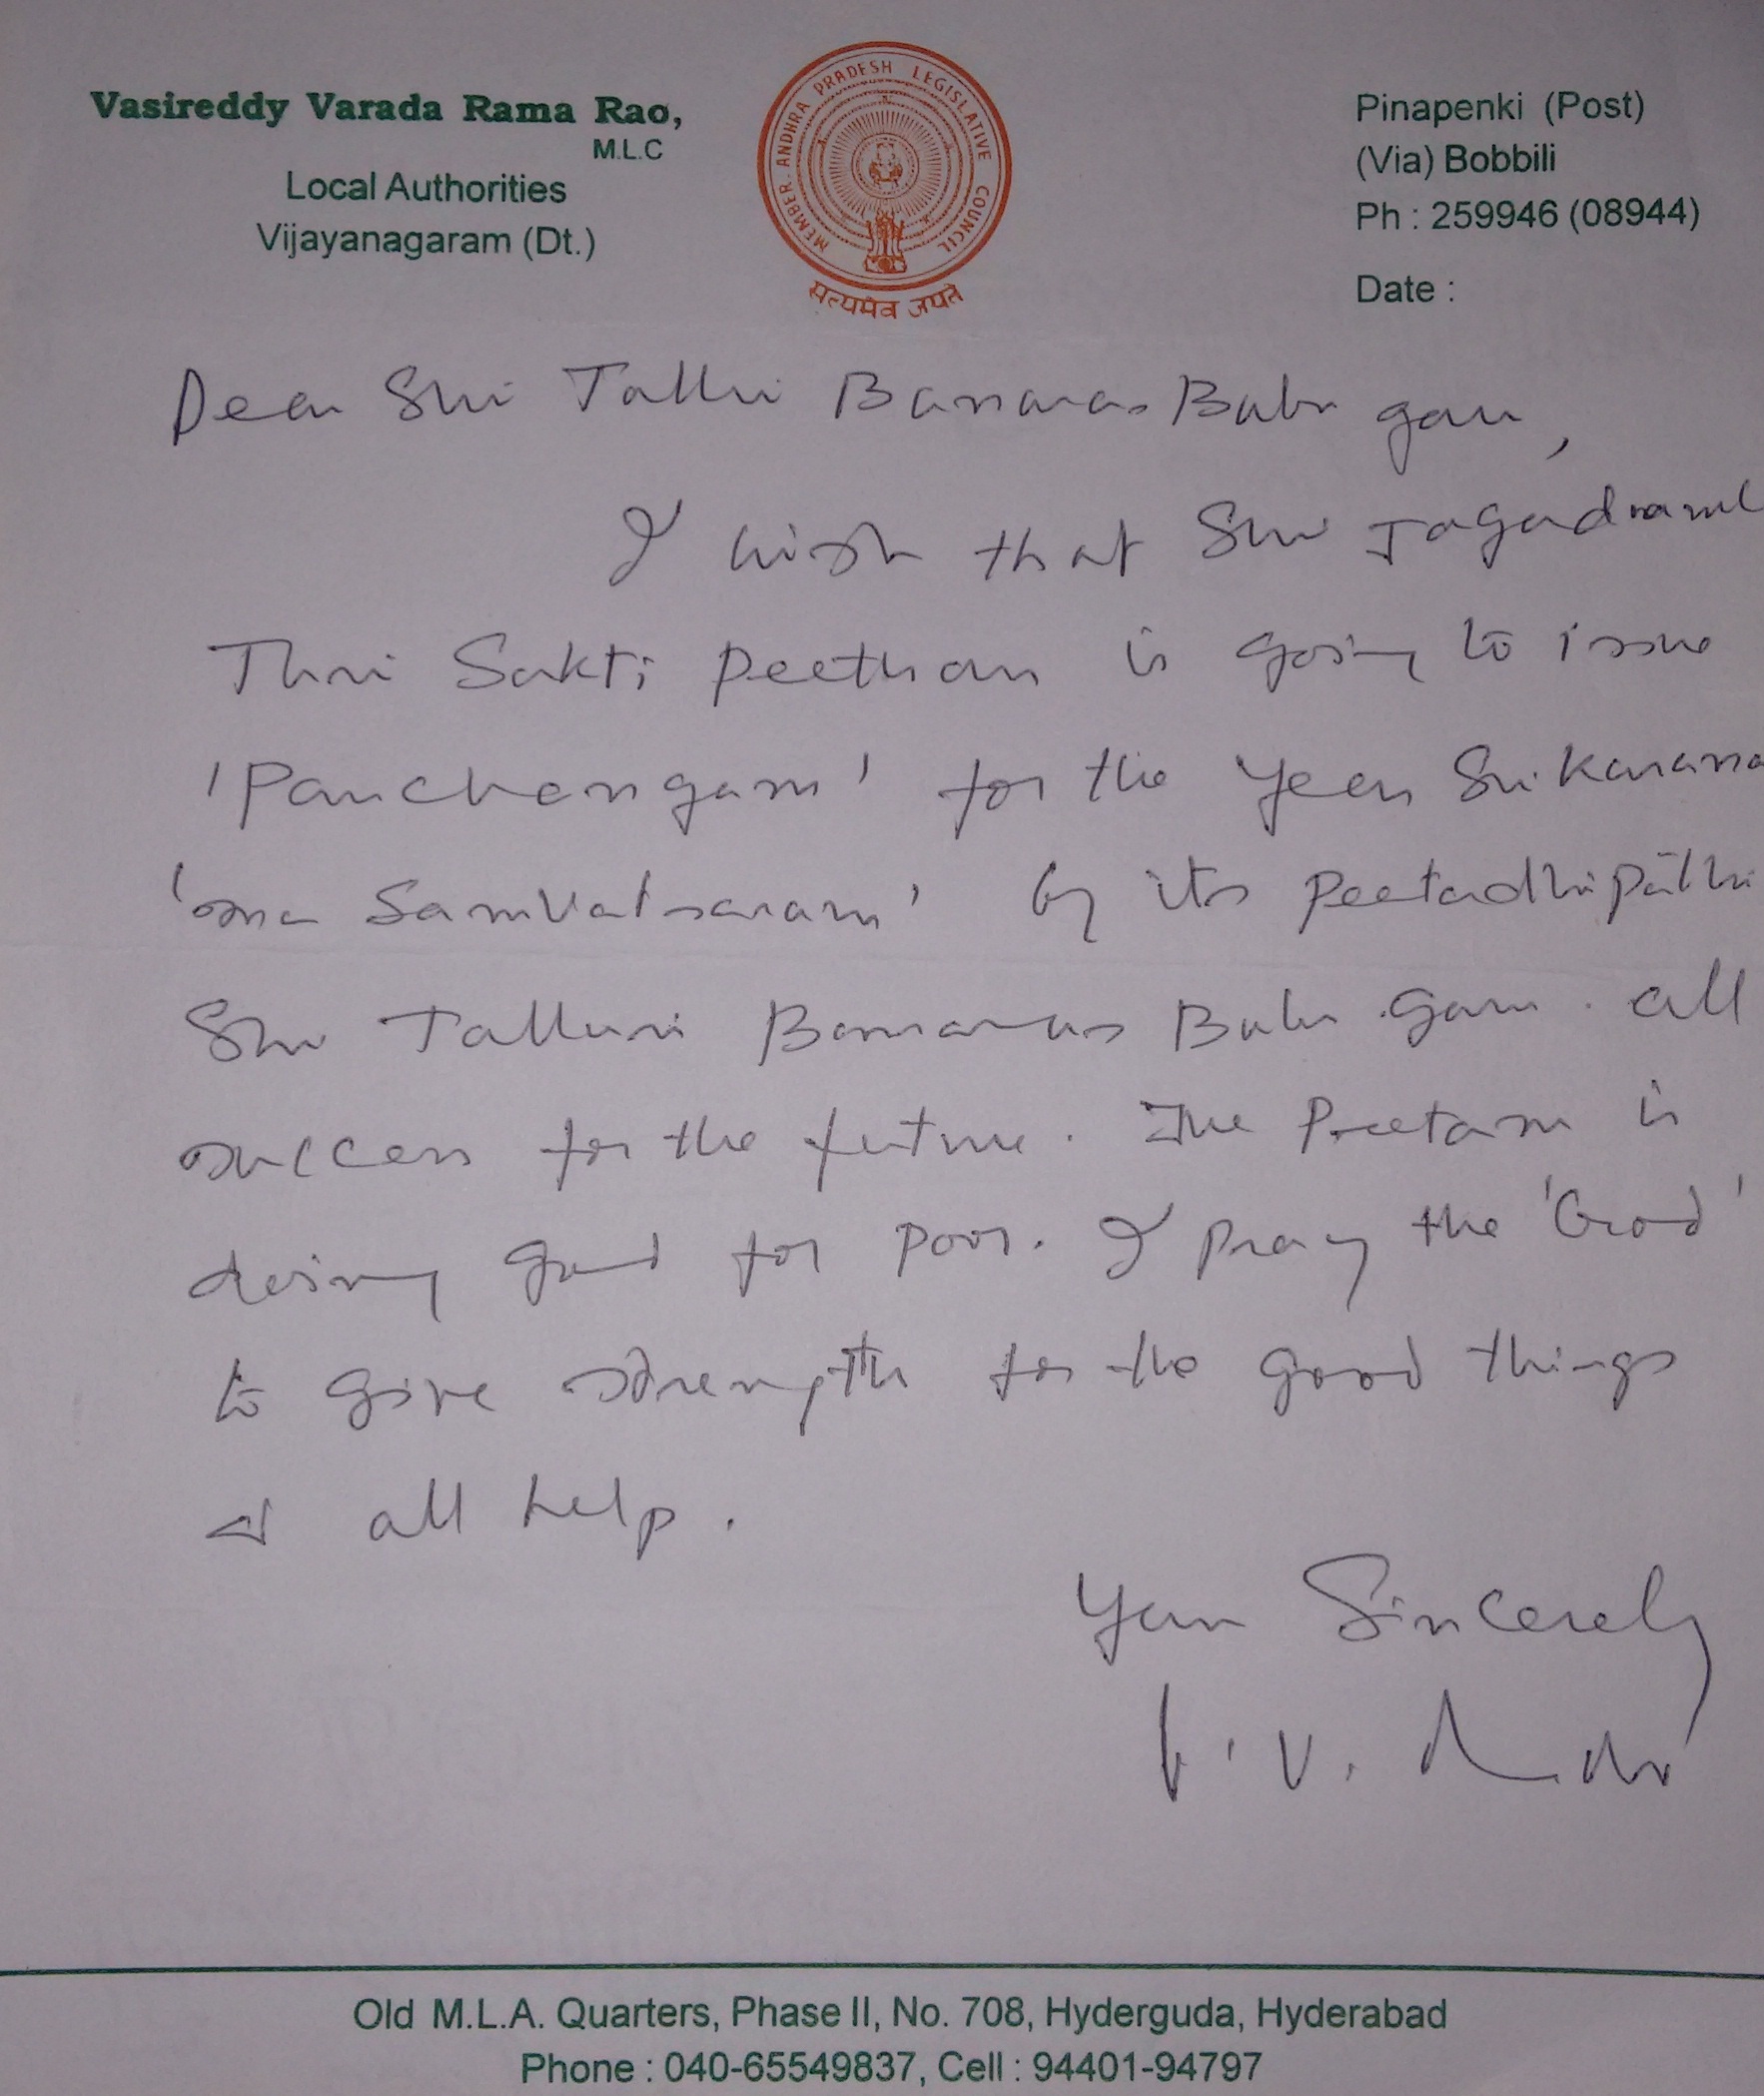 Vasireddy Varada Rama Rao,
M.L.C
Local Authorities
Vijayanagaram (Dt.)
MEMBER. ANDHRA PRADESH LEGISLATIVE COUNCIL
सत्यमेव जयते
Pinapenki (Post)
(Via) Bobbili
Ph : 259946 (08944)
Date :
Dear Shri Talluri Banaras Babu garu,
I wish that Shri
Thri Sakti Peetham is going to issue
'Panchangam' for the year Sri Karana
Samvatsaram' by its Peetadhipathi
Shri Talluri Banaras Babu garu. all
success for the future. The Peetam is
doing good for poor. I pray the 'God'
to give strength for the good things
& all help.
Your Sincerely
V. V.
Old M.L.A. Quarters, Phase II, No. 708, Hyderguda, Hyderabad
Phone : 040-65549837, Cell : 94401-94797